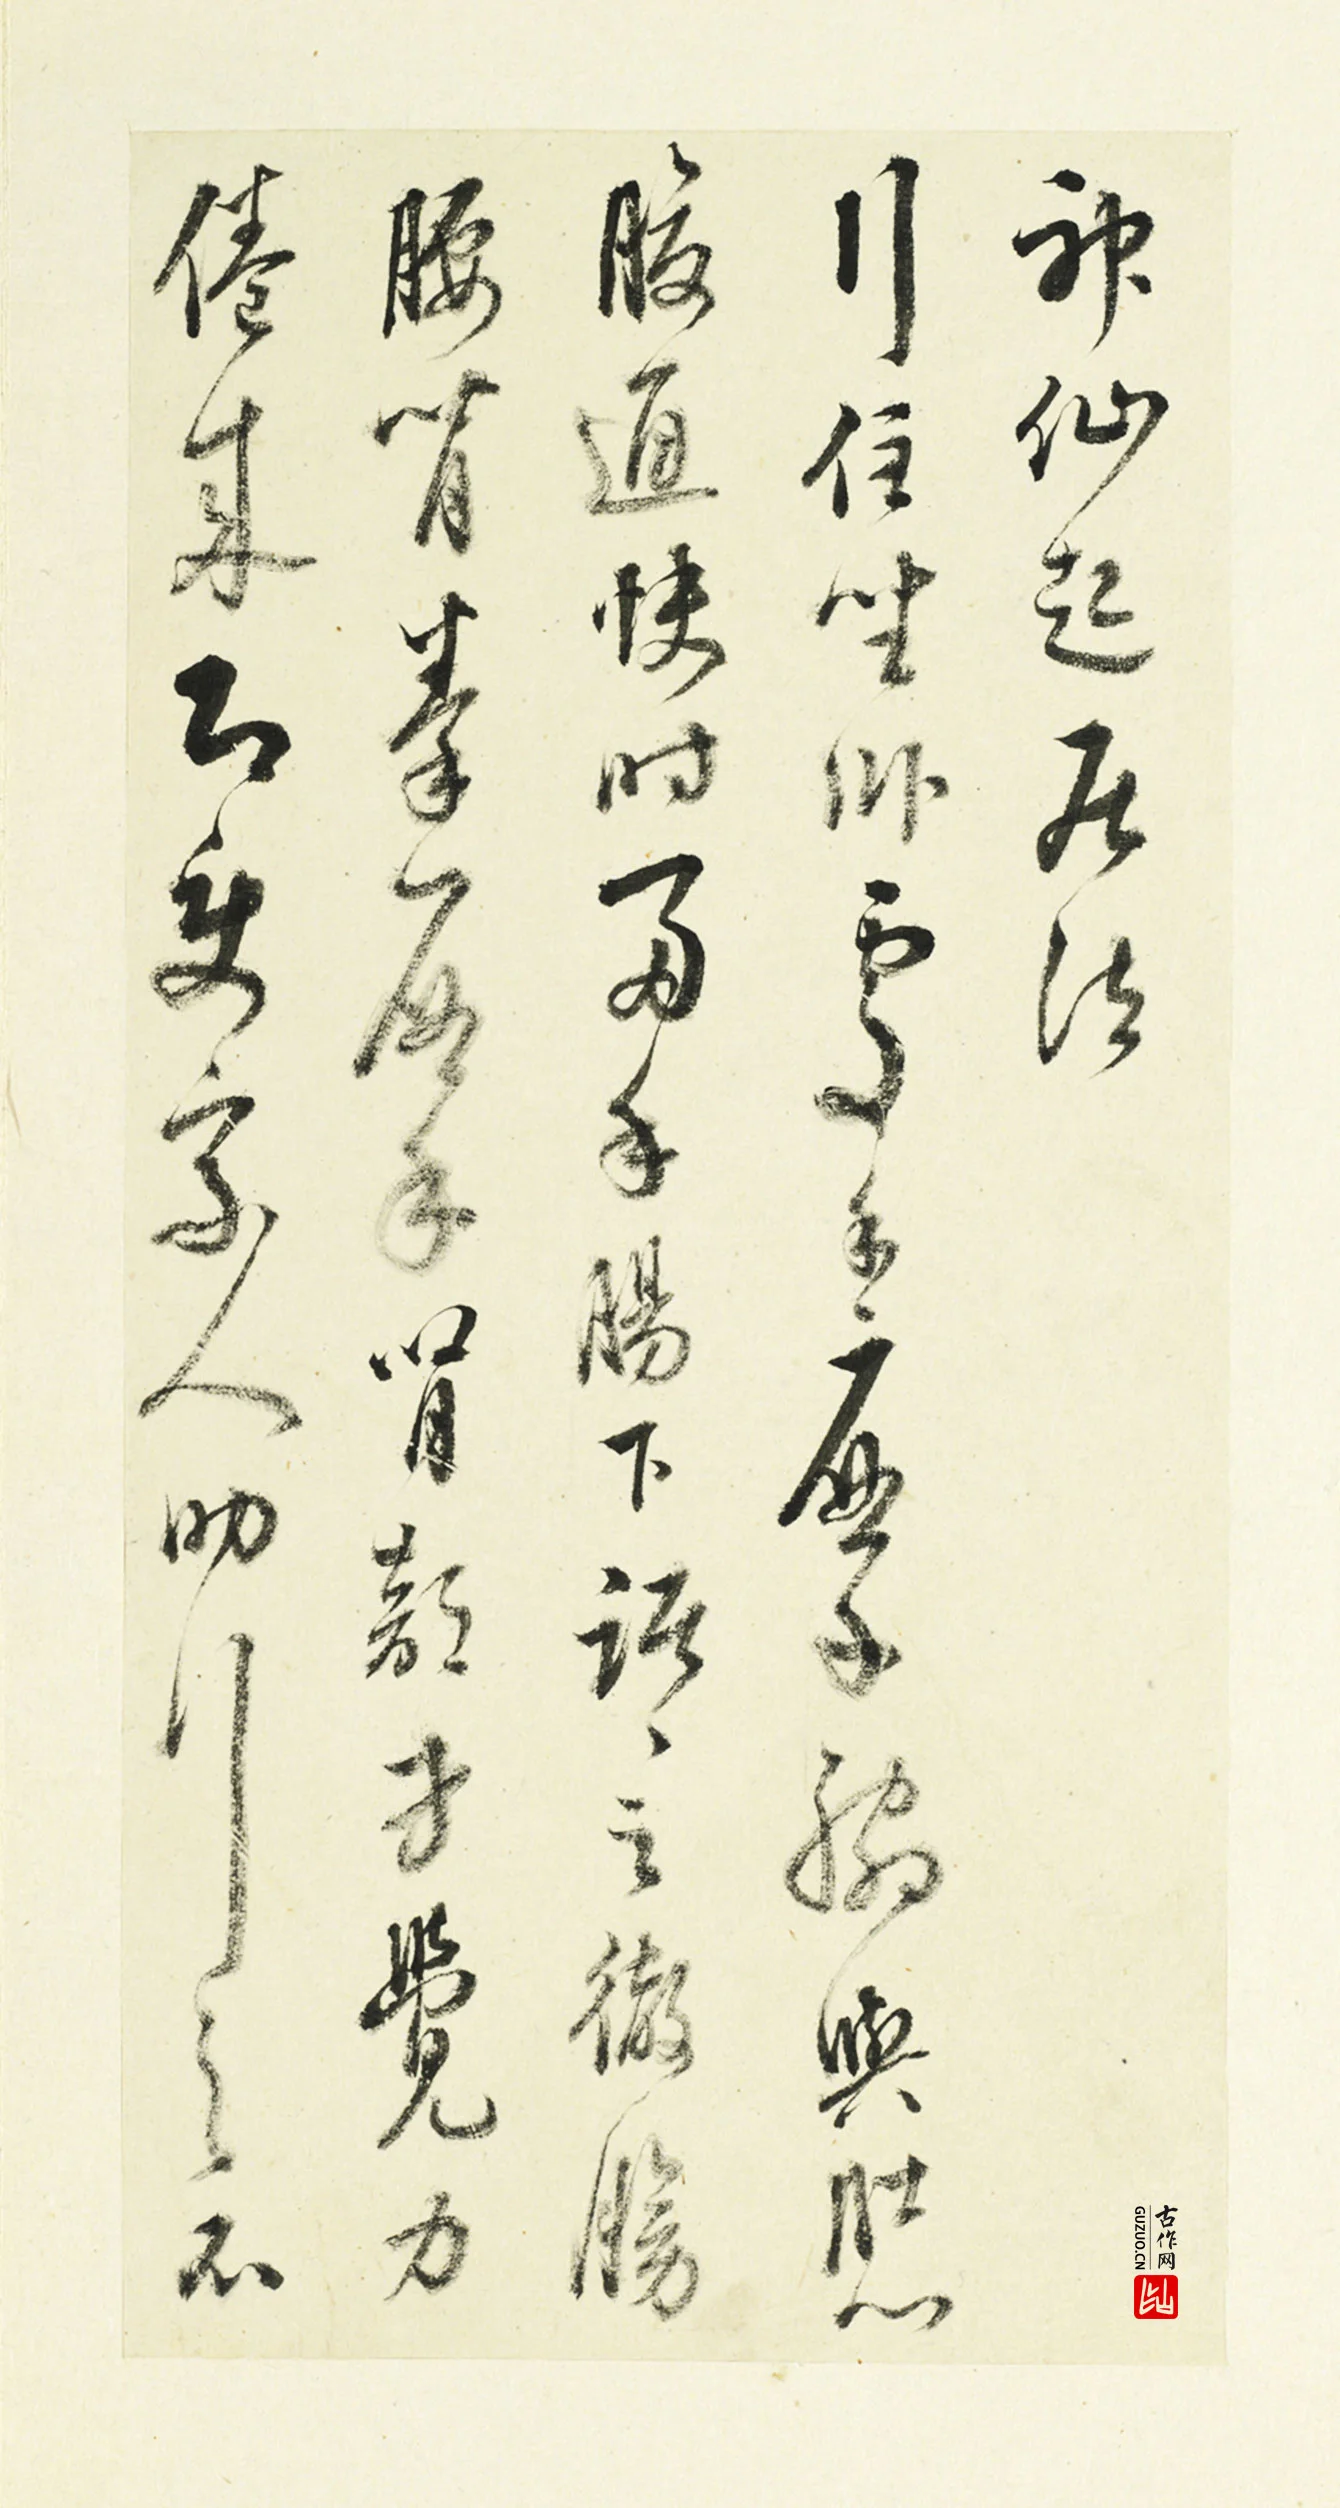 神仙起居法
行住坐卧處手摩脇與肚心
腹通快時兩手腸下踞〻之徹膀
腰背拳摩腎部才覺力
倦來即使家人助行之不
古作网
GUZUO.CN